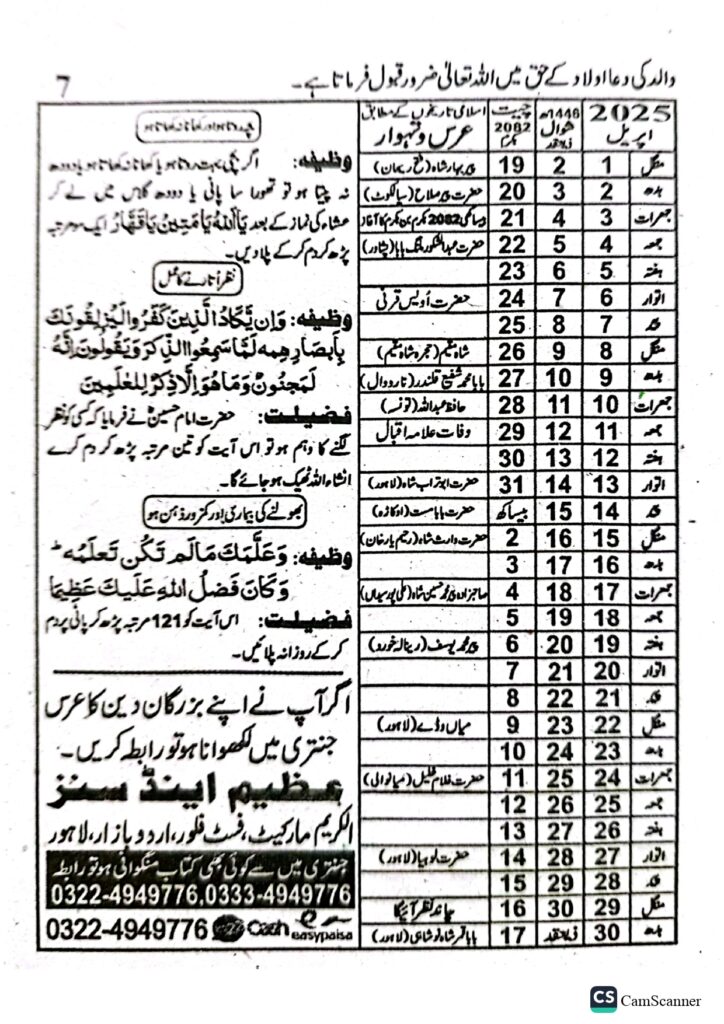 والد کی دعا اولاد کے حق میں اللہ تعالیٰ ضرور قبول فرماتا ہے۔
7
2025 اپریل
1446ھ شوال ذیلقعد
چیت 2082 بکرم
اسلامی تاریخوں کے مطابق عرس و تہوار
منگل 1 2 19 پیر بہار شاہ
بدھ 2 3 20 حضرت پیر صلاح (سیالکوٹ)
جمعرات 3 4 21 بیساکھی 2082 بکرم سن بکرم کا آغاز
جمعہ 4 5 22 حضرت عبدالشکور ملنگ بابا (پشاور)
ہفتہ 5 6 23
اتوار 6 7 24 حضرت اویس قرنی
پیر 7 8 25
منگل 8 9 26 شاہ مقیم (حجرہ شاہ مقیم)
بدھ 9 10 27 بابا محمد شفیع قلندر (نارووال)
جمعرات 10 11 28 حافظ عبداللہ (تونسہ)
جمعہ 11 12 29 وفات علامہ اقبال
ہفتہ 12 13 30
اتوار 13 14 31 حضرت ابوتراب شاہ (لاہور)
پیر 14 15 بیساکھ حضرت بابا مست (اوکاڑہ)
منگل 15 16 2 حضرت وارث شاہ (رحیم یار خان)
بدھ 16 17 3
جمعرات 17 18 4 صاجزادہ پیر محمد حسین شاہ (علی پور سیداں)
جمعہ 18 19 5
ہفتہ 19 20 6 پیر محمد یوسف (رینالہ خورد)
اتوار 20 21 7
پیر 21 22 8
منگل 22 23 9 میاں وڈے (لاہور)
بدھ 23 24 10
جمعرات 24 25 11 حضرت غلام خلیل (میانوالی)
جمعہ 25 26 12
ہفتہ 26 27 13
اتوار 27 28 14 حضرت لوبیا (لاہور)
پیر 28 29 15
منگل 29 30 16 چاند نظر آئیگا
بدھ 30 ذیلقعد 17 بابا قمر شاہ نوشاہی (لاہور)
بچہ روتا ہو اور کھانا نہ کھاتا ہو
وظیفہ: اگر بچی بہت روتا ہو یا کھانا نہ کھاتا ہو یا دودھ
نہ پیتا ہو تو تھورا سا پانی یا دودھ گلاس میں لے کر
عشاء کی نماز کے بعد یَااَللہُ یَا مَتِینُ یَا قَہَّارُ ایک سو مرتبہ
پڑھ کر دم کر کے پلا دیں۔
نظر اُتارنے کا عمل
وظیفہ: وَاِنْ یَّکَادُ الَّذِیْنَ کَفَرُوْا لَیُزْلِقُوْنَکَ
بِاَبْصَارِهِمْ لَمَّا سَمِعُوا الذِّکْرَ وَیَقُوْلُوْنَ اِنَّهٗ
لَمَجْنُوْنٌ وَمَا هُوَ اِلَّا ذِکْرٌ لِّلْعٰلَمِیْنَ
فضیلت: حضرت امام حسینؓ نے فرمایا کہ کسی کو نظر
لگنے کا وہم ہو تو اس آیت کو تین مرتبہ پڑھ کر دم کرے
انشاء اللہ ٹھیک ہو جائے گا۔
بھولنے کی بیماری اور کمزور ذہن ہو
وظیفہ: وَعَلَّمَكَ مَا لَمْ تَكُنْ تَعْلَمُ ؕ
وَكَانَ فَضْلُ اللهِ عَلَيْكَ عَظِيْمًا
فضیلت: اس آیت کو 121 مرتبہ پڑھ کر پانی پر دم
کر کے روزانہ پلائیں۔
اگر آپ نے اپنے بزرگان دین کا عرس
جنتری میں لکھوانا ہو تو رابطہ کریں۔
عظیم اینڈ سنز
الکریم مارکیٹ، فسٹ فلور، اردو بازار، لاہور
جنتری میں سے کوئی بھی کتاب منگوانی ہو تو رابطہ
0322-4949776,0333-4949776
0322-4949776 Cash easypaisa
CS CamScanner